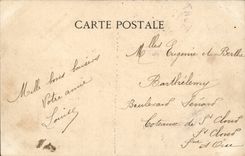 CARTE POSTALE
Mille bons baisers
Votre amie
Louise
Mlles Eugénie et Berthe
Barthélemy
Boulevard Sénard
Coteaux de St Cloud
St Cloud
Sne et Oise